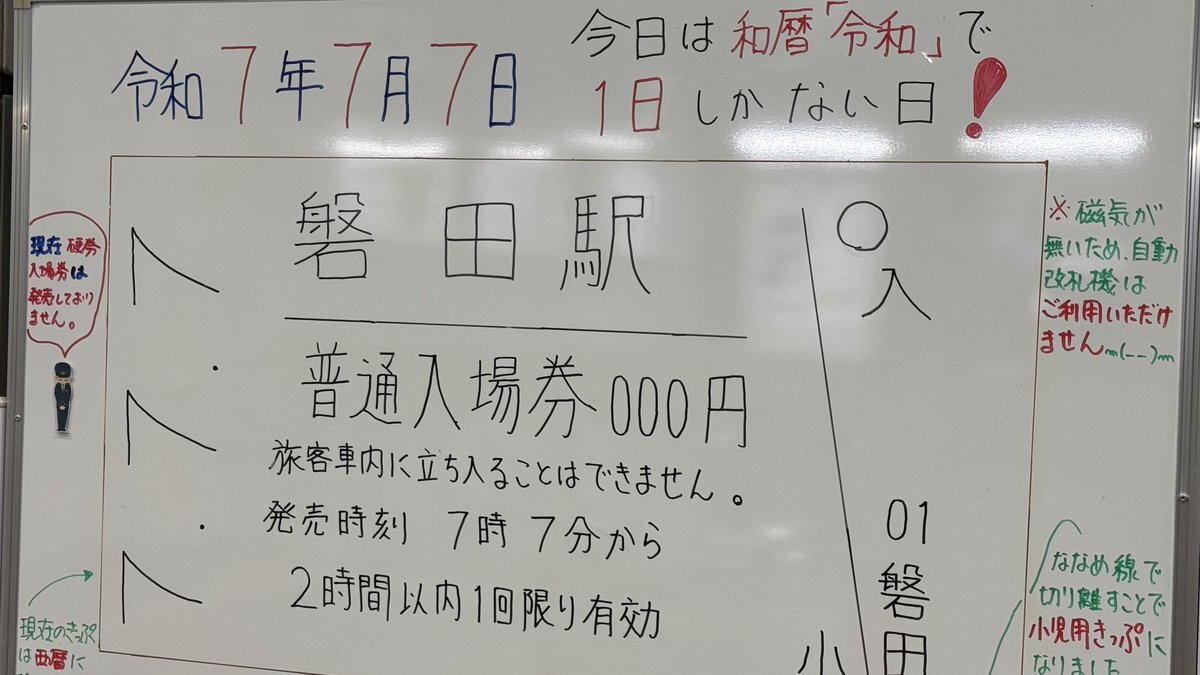 令和7年7月7日
今日は和暦「令和」で
1日しかない日!
現在硬券
入場券は
発売しており
ません。
磐田駅
普通入場券000円
旅客車内に立ち入ることはできません。
発売時刻 7時7分から
2時間以内1回限り有効
○入
01
磐田
小
※磁気が
無いため、自動
改札機は
ご利用いただけ
ませんm(__)m
現在のきっぷ
は西暦に
ななめ線で
切り離すことで
小児用きっぷに
なりました